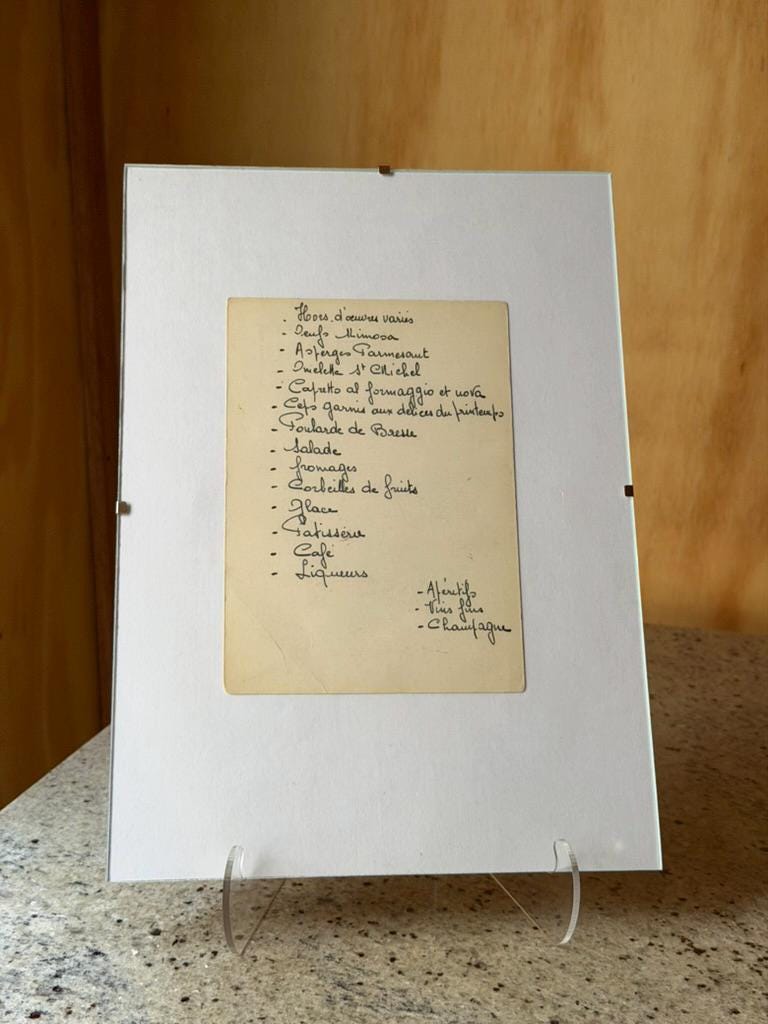 . Hors. d'œuvres variés
- Oeufs Mimosa
- Asperges Parmesant
- Omelette St Michel
- Capretto al formaggio et uova
- Ceps garnis aux délices du printemps
- Poularde de Bresse
- Salade
- fromages
- Corbeilles de fruits
- Glace
- Patisserie
- Café
- Liqueurs
- Apéritifs
- Vins fins
- Champagne